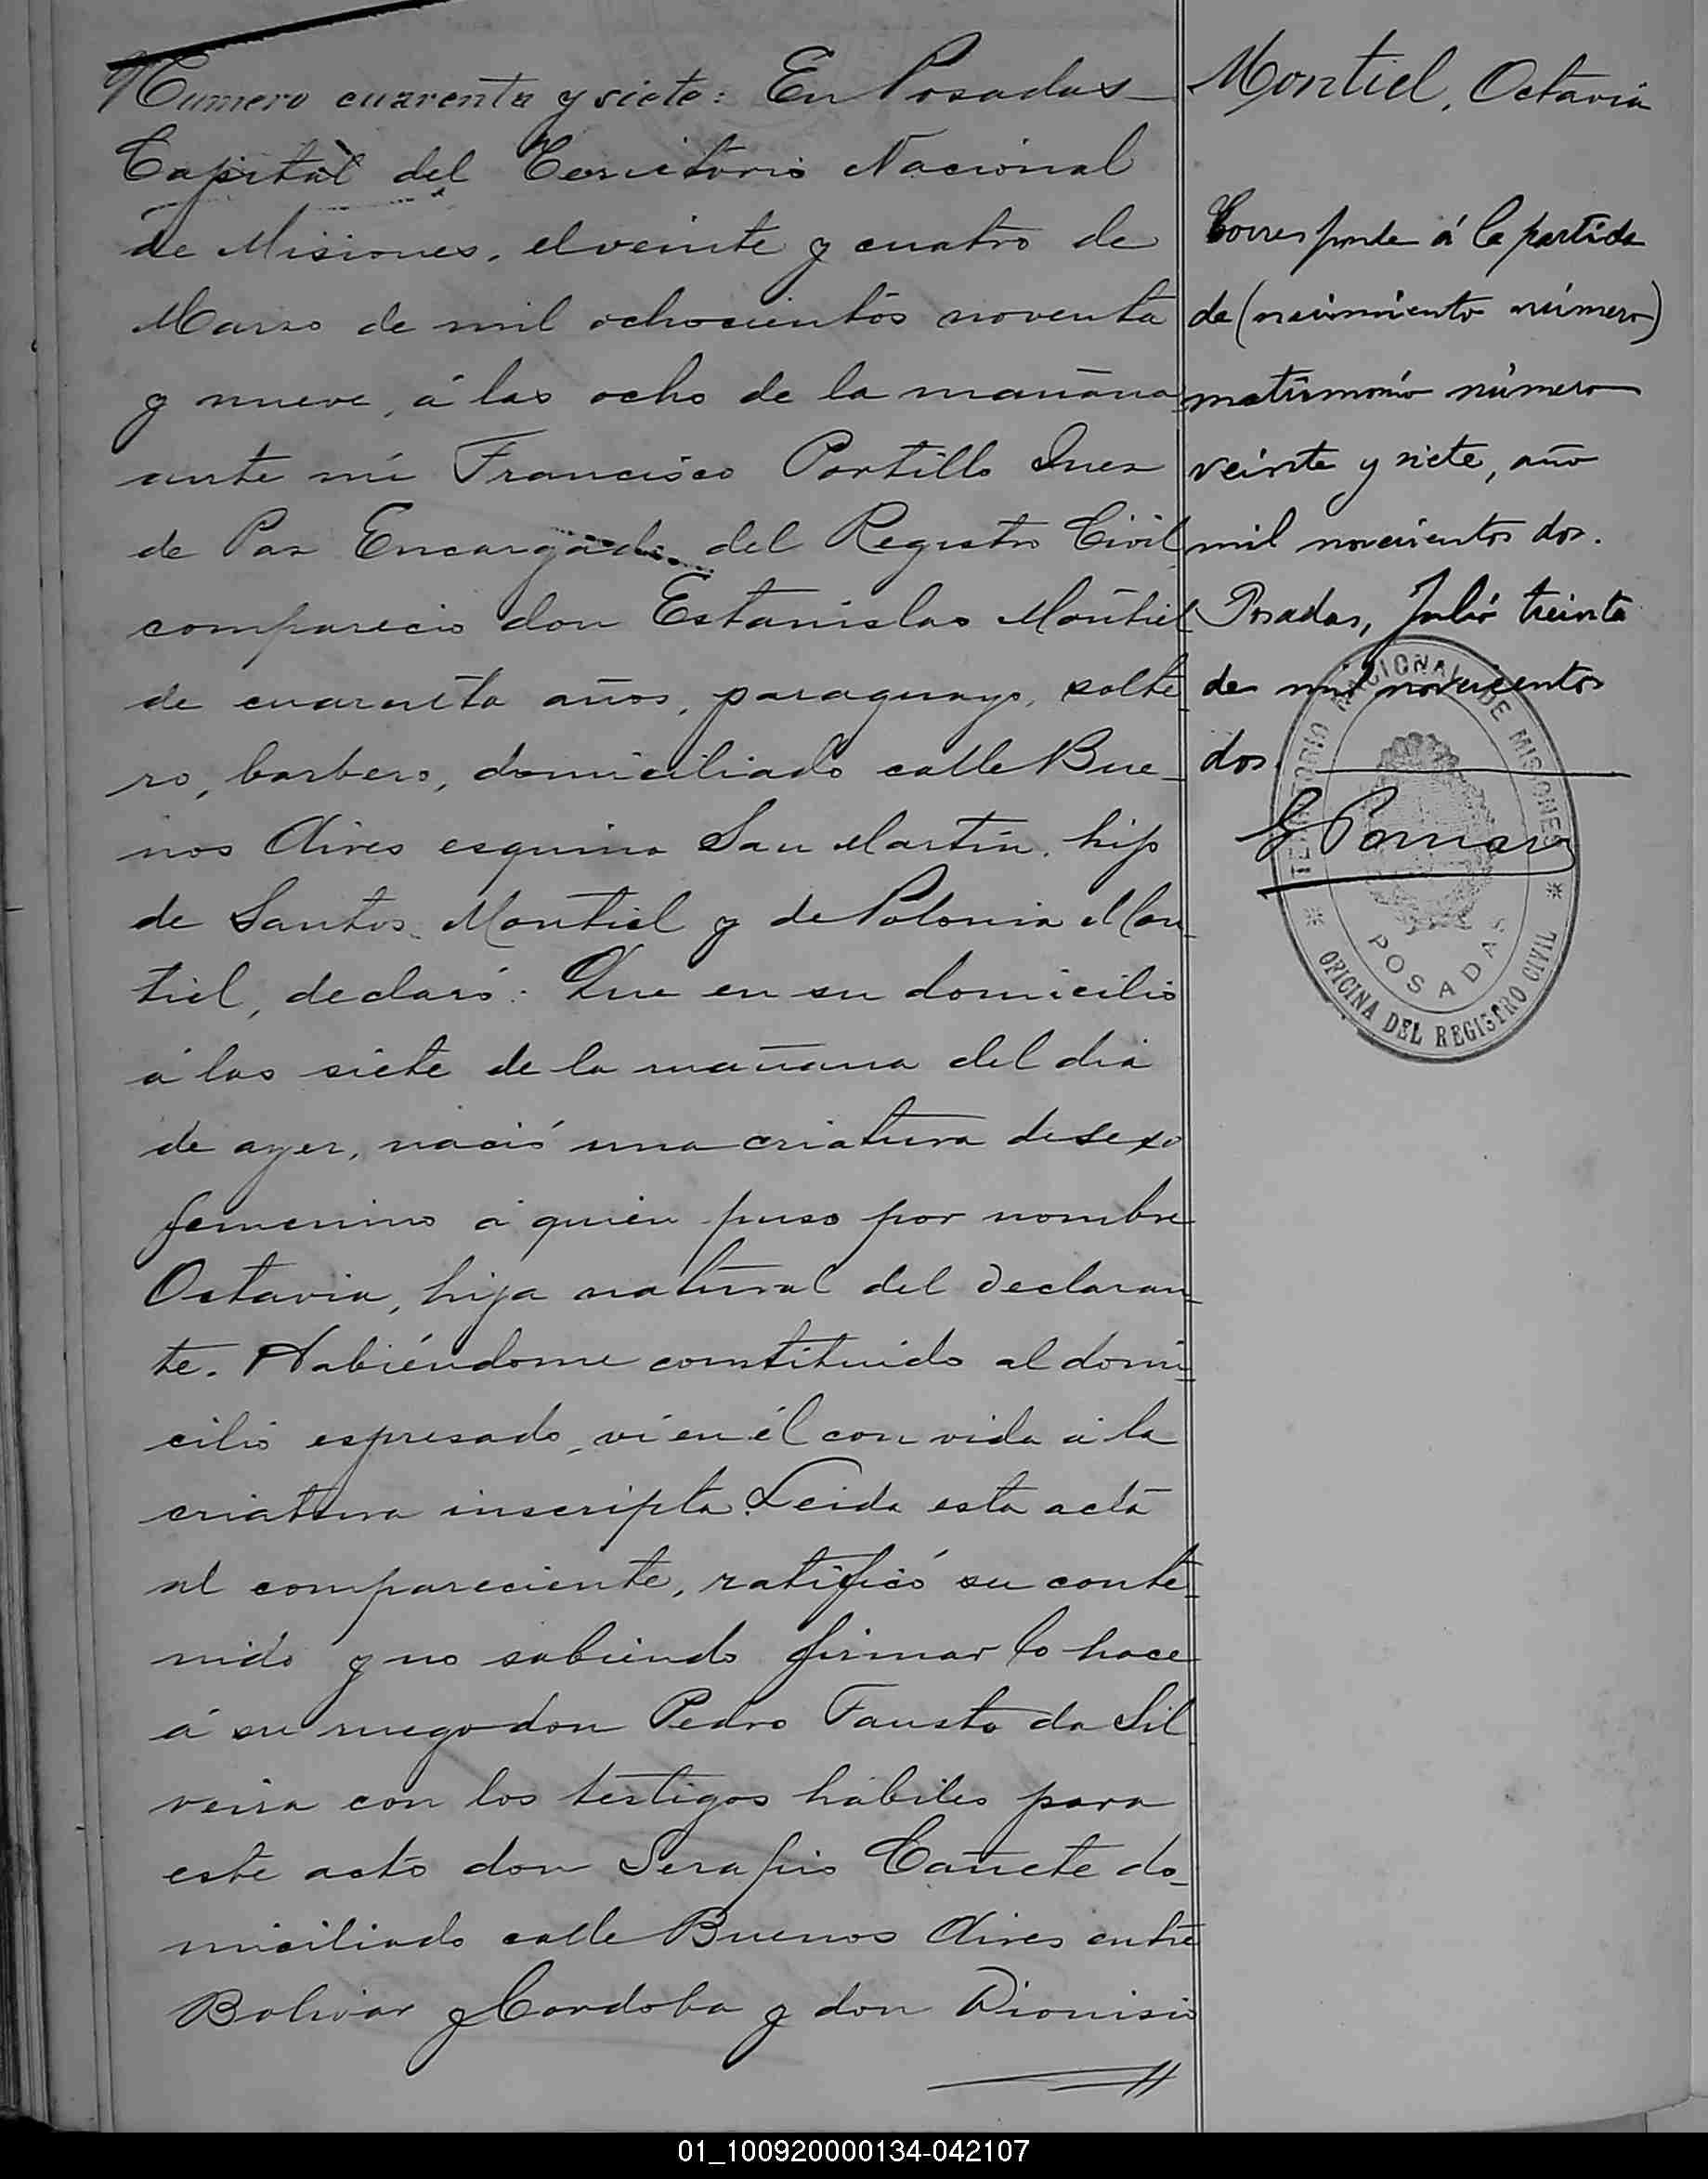 Numero cuarenta y siete: En Posadas
Capital del Territorio Nacional
de Misiones, el veinte y cuatro de
Marzo de mil ochocientos noventa
y nueve, á las ocho de la mañana
ante mi Francisco Portillo Juez
de Paz Encargado del Registro Civil
comparecio don Estanislao Montiel
de cuarenta años, paraguayo, solte
ro, barbero, domiciliado calle Bue-
nos Aires esquina San Martin, hijo
de Santos Montiel y de Polonia Mon
tiel, declaró: Que en su domicilio
á las siete de la mañana del dia
de ayer, nació una criatura de sexo
femenino á quien puso por nombre
Octavia, hija natural del declaran
te. Habiéndome constituido al domi
cilio espresado, vi en él con vida á la
criatura inscripta. Leida esta acta
al compareciente, ratificó su conte
nido y no sabiendo firmar lo hace
á su ruego don Pedro Fausto da Sil
veira con los testigos habiles para
este acto don Serafin Cañete do
miciliado calle Buenos Aires entre
Bolivar y Cordoba y don Dionisio
Montiel, Octavia
Corresponde á la partida
de (nacimiento número)
matrimonio número
veinte y siete, año
mil novecientos dos.
Posadas, Julio treinta
de mil novecientos
dos.
TERRITORIO NACIONAL DE MISIONES
POSADAS
OFICINA DEL REGISTRO CIVIL
01_100920000134-042107